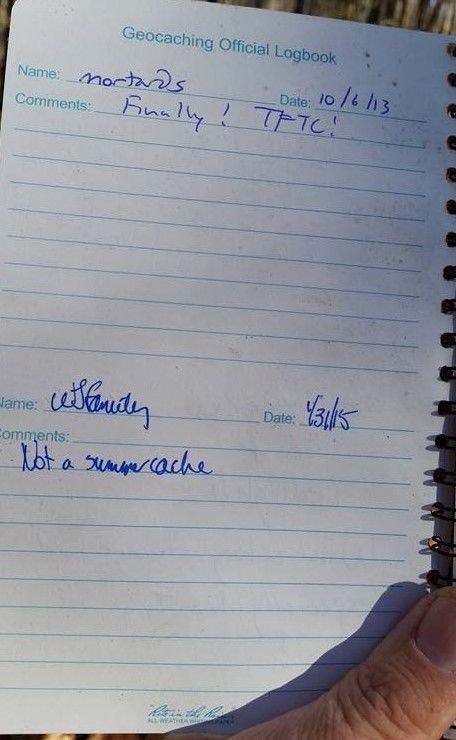 Geocaching Official Logbook
Name: nortards Date: 10/6/13
Comments: Finally! TFTC!
Name: Date: 1/31/15
Comments:
Not a summer cache
Rite in the Rain
ALL-WEATHER WRITING PAPER